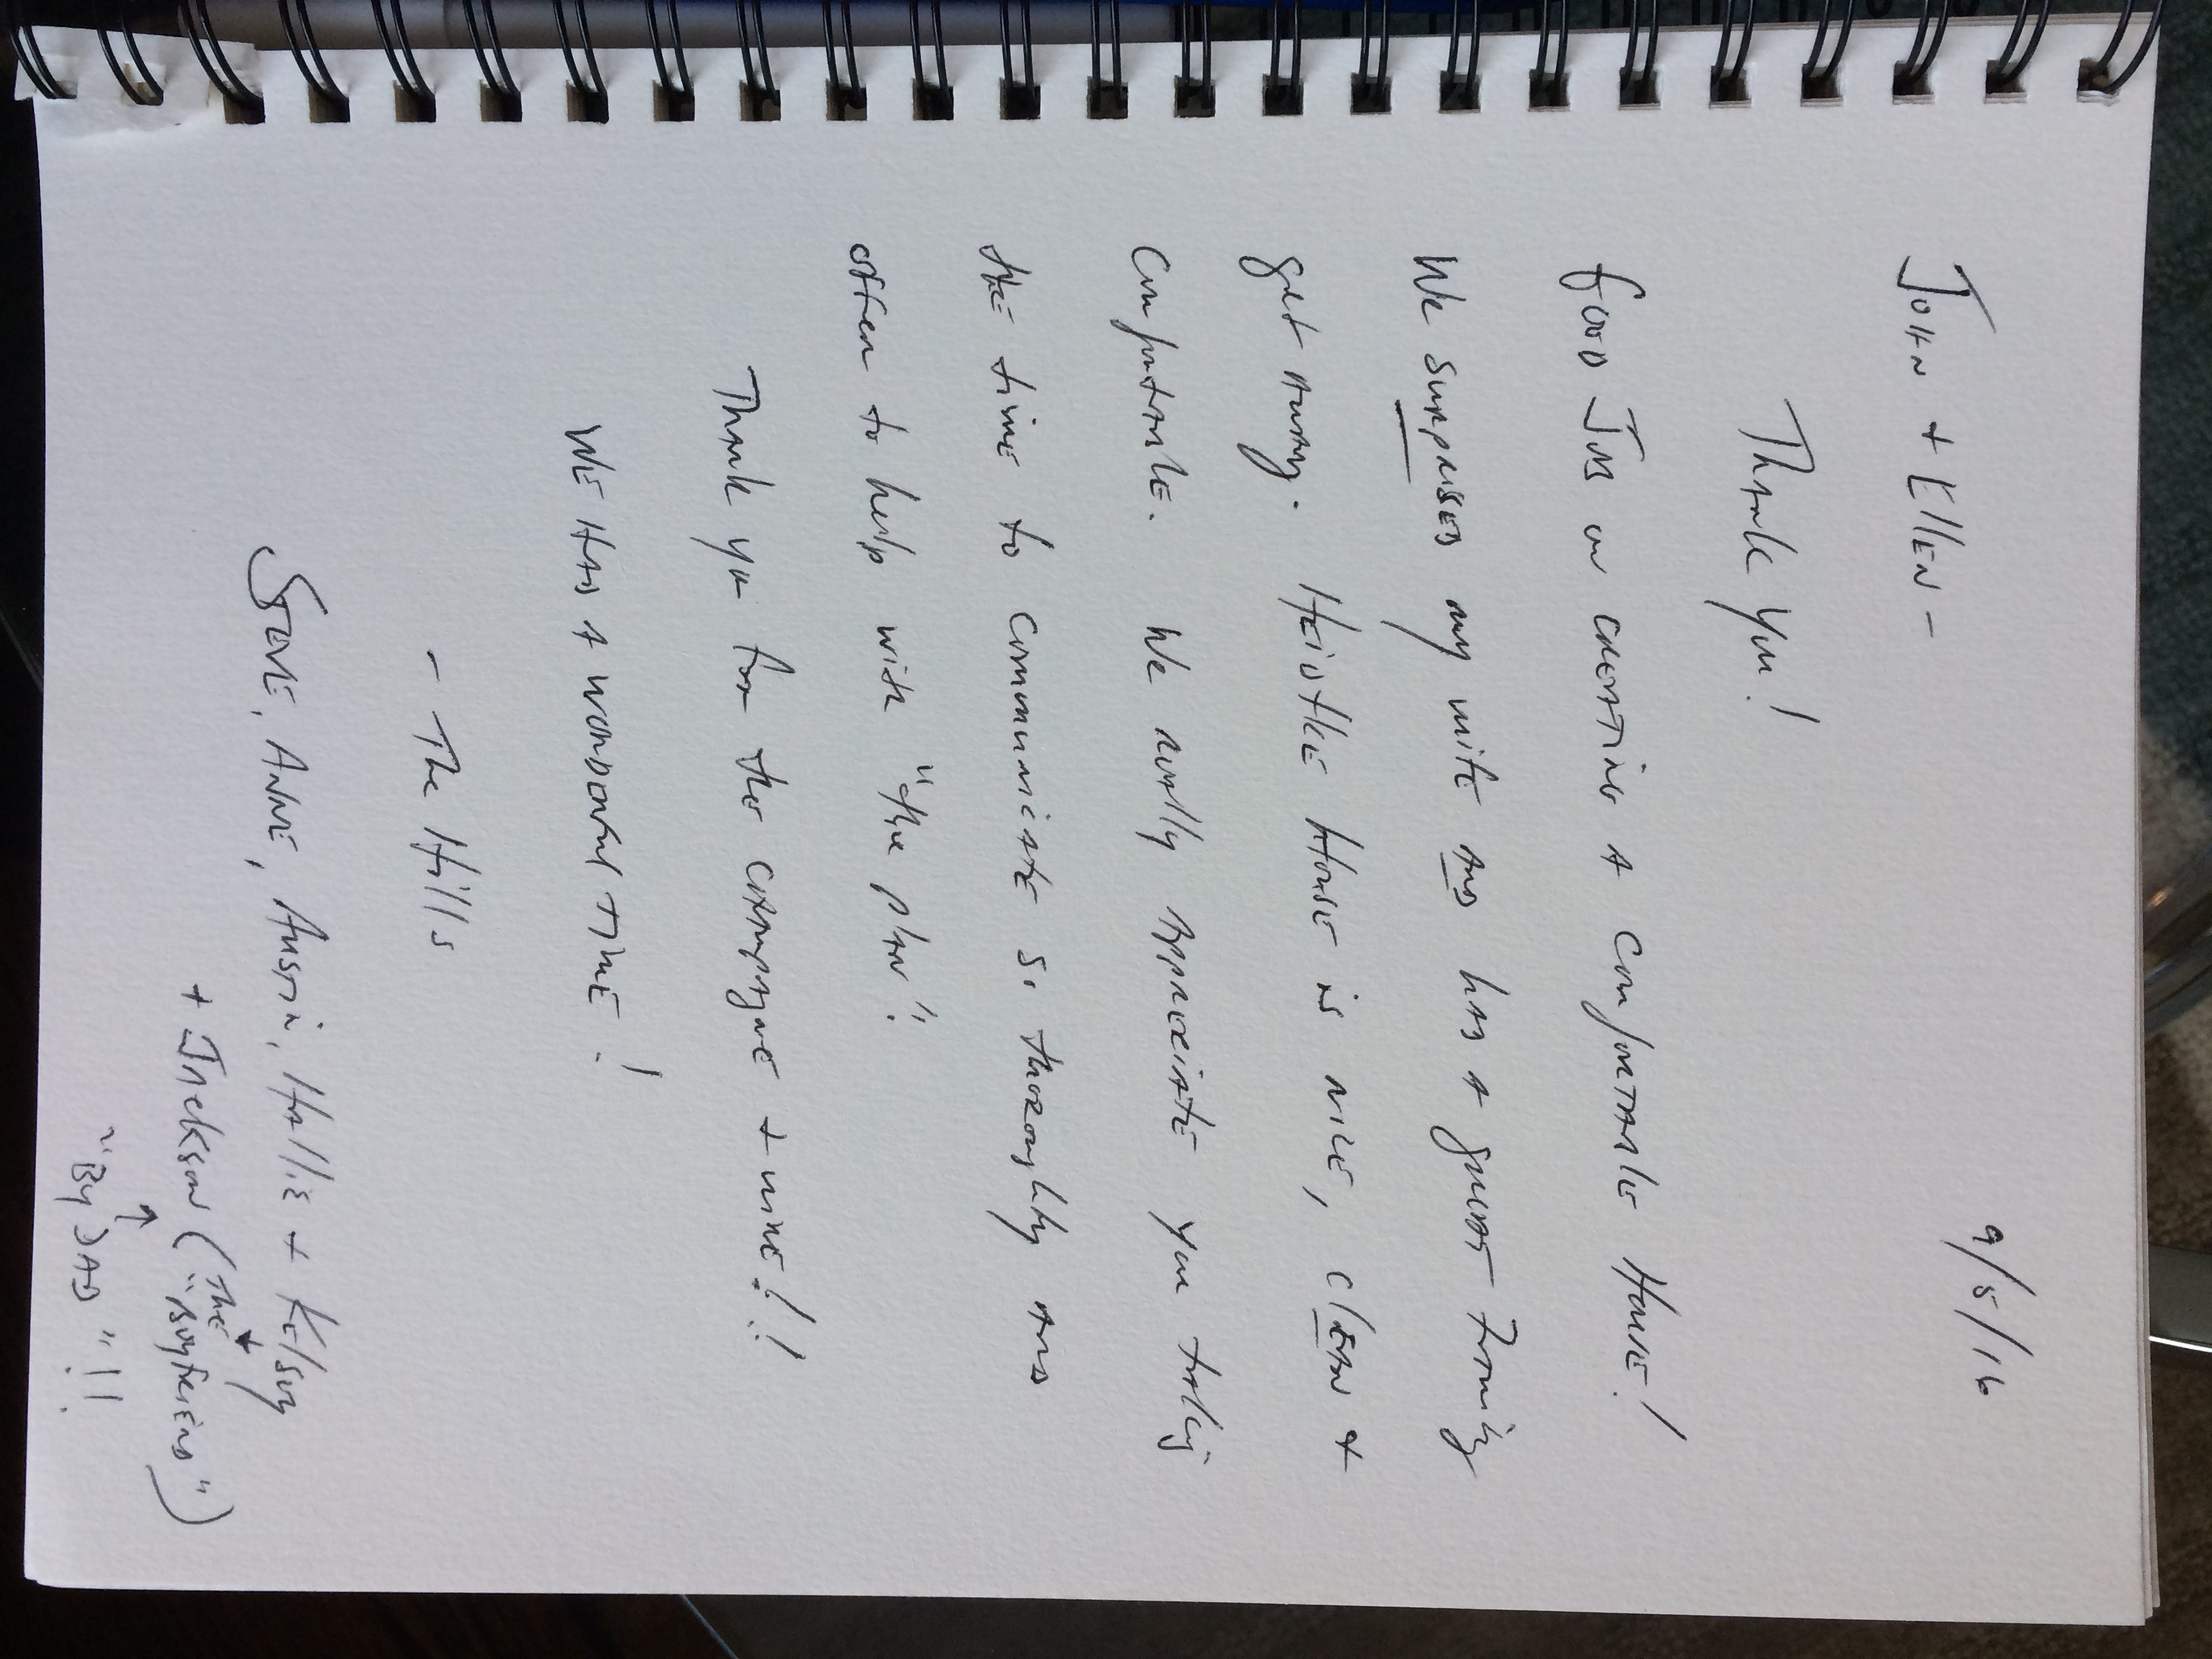 9/5/16
John + Ellen -
Thank you!
Good Job on creating a comfortable House!
We surprised my wife and had a great Family
get away. Heidtke House is nice, clean +
Comfortable. We really appreciate you taking
the time to communicate so thoroughly and
offer to help with "the plan".
Thank you for the champagne + wine!!
We had a wonderful time!
- The Hills
Steve, Anne, Austin, Hallie + Kelsey
+ Jackson (The "Boyfriend")
~ "By DAD"!!